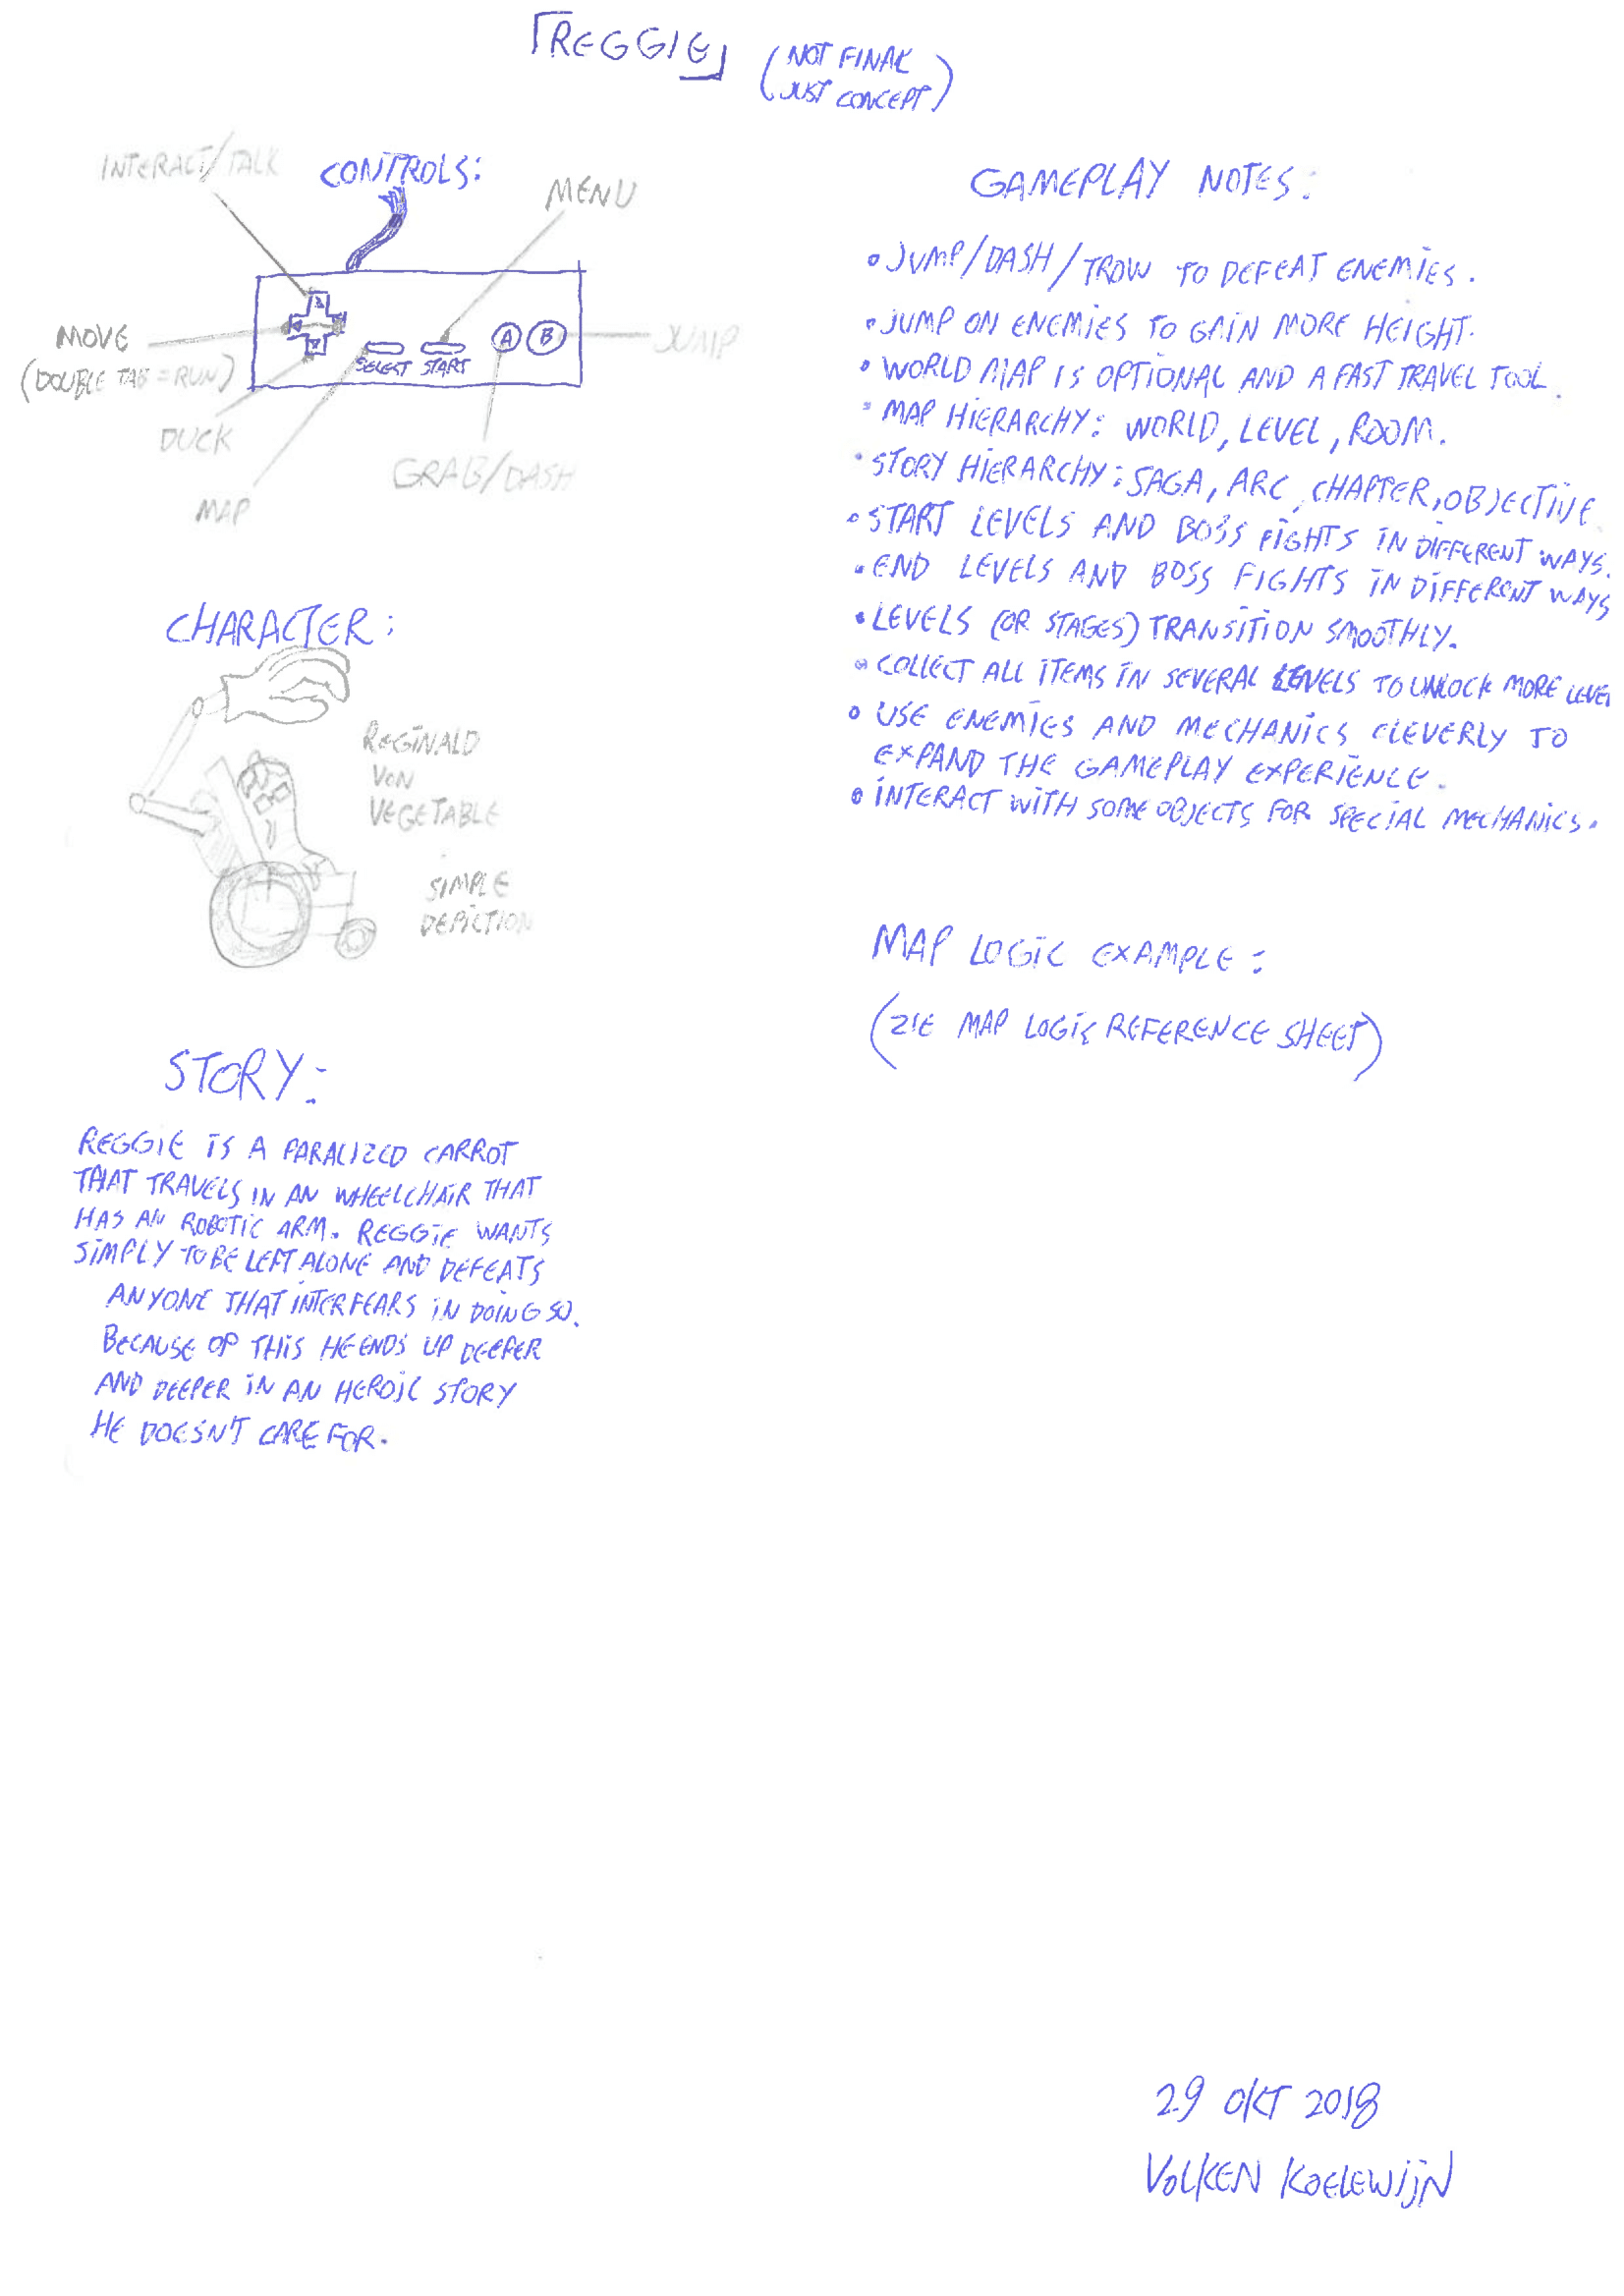 「REGGIE」
(NOT FINAL
JUST CONCEPT)
CONTROLS:
INTERACT/TALK
MENU
MOVE
(DOUBLE TAB = RUN)
DUCK
MAP
SELECT START
A B
JUMP
GRAB/DASH
CHARACTER:
REGINALD
VON
VEGETABLE
SIMPLE
DEPICTION
STORY:
REGGIE IS A PARALIZED CARROT
THAT TRAVELS IN AN WHEELCHAIR THAT
HAS AN ROBOTIC ARM. REGGIE WANTS
SIMPLY TO BE LEFT ALONE AND DEFEATS
ANYONE THAT INTERFEARS IN DOING SO.
BECAUSE OP THIS HE ENDS UP DEEPER
AND DEEPER IN AN HEROIC STORY
HE DOESN'T CARE FOR.
GAMEPLAY NOTES:
• JUMP/DASH/TROW TO DEFEAT ENEMIES.
• JUMP ON ENEMIES TO GAIN MORE HEIGHT.
• WORLD MAP IS OPTIONAL AND A FAST TRAVEL TOOL.
• MAP HIERARCHY: WORLD, LEVEL, ROOM.
• STORY HIERARCHY: SAGA, ARC, CHAPTER, OBJECTIVE
• START LEVELS AND BOSS FIGHTS IN DIFFERENT WAYS.
• END LEVELS AND BOSS FIGHTS IN DIFFERENT WAYS
• LEVELS (OR STAGES) TRANSITION SMOOTHLY.
• COLLECT ALL ITEMS IN SEVERAL LEVELS TO UNLOCK MORE LEVEL
• USE ENEMIES AND MECHANICS CLEVERLY TO
EXPAND THE GAMEPLAY EXPERIENCE.
• INTERACT WITH SOME OBJECTS FOR SPECIAL MECHANICS.
MAP LOGIC EXAMPLE:
(ZIE MAP LOGIC REFERENCE SHEET)
29 OKT 2018
VOLKEN KOELEWIJN